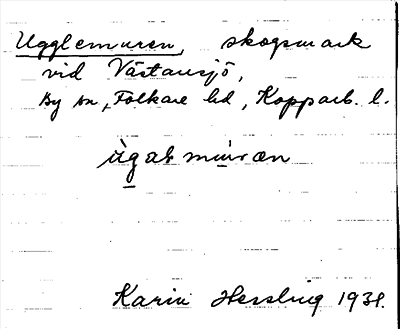 Ugglemuren, skogsmark
vid Västansjö,
By sn, Folkare hd, Kopparb. l.
Karin Hessling 1931.